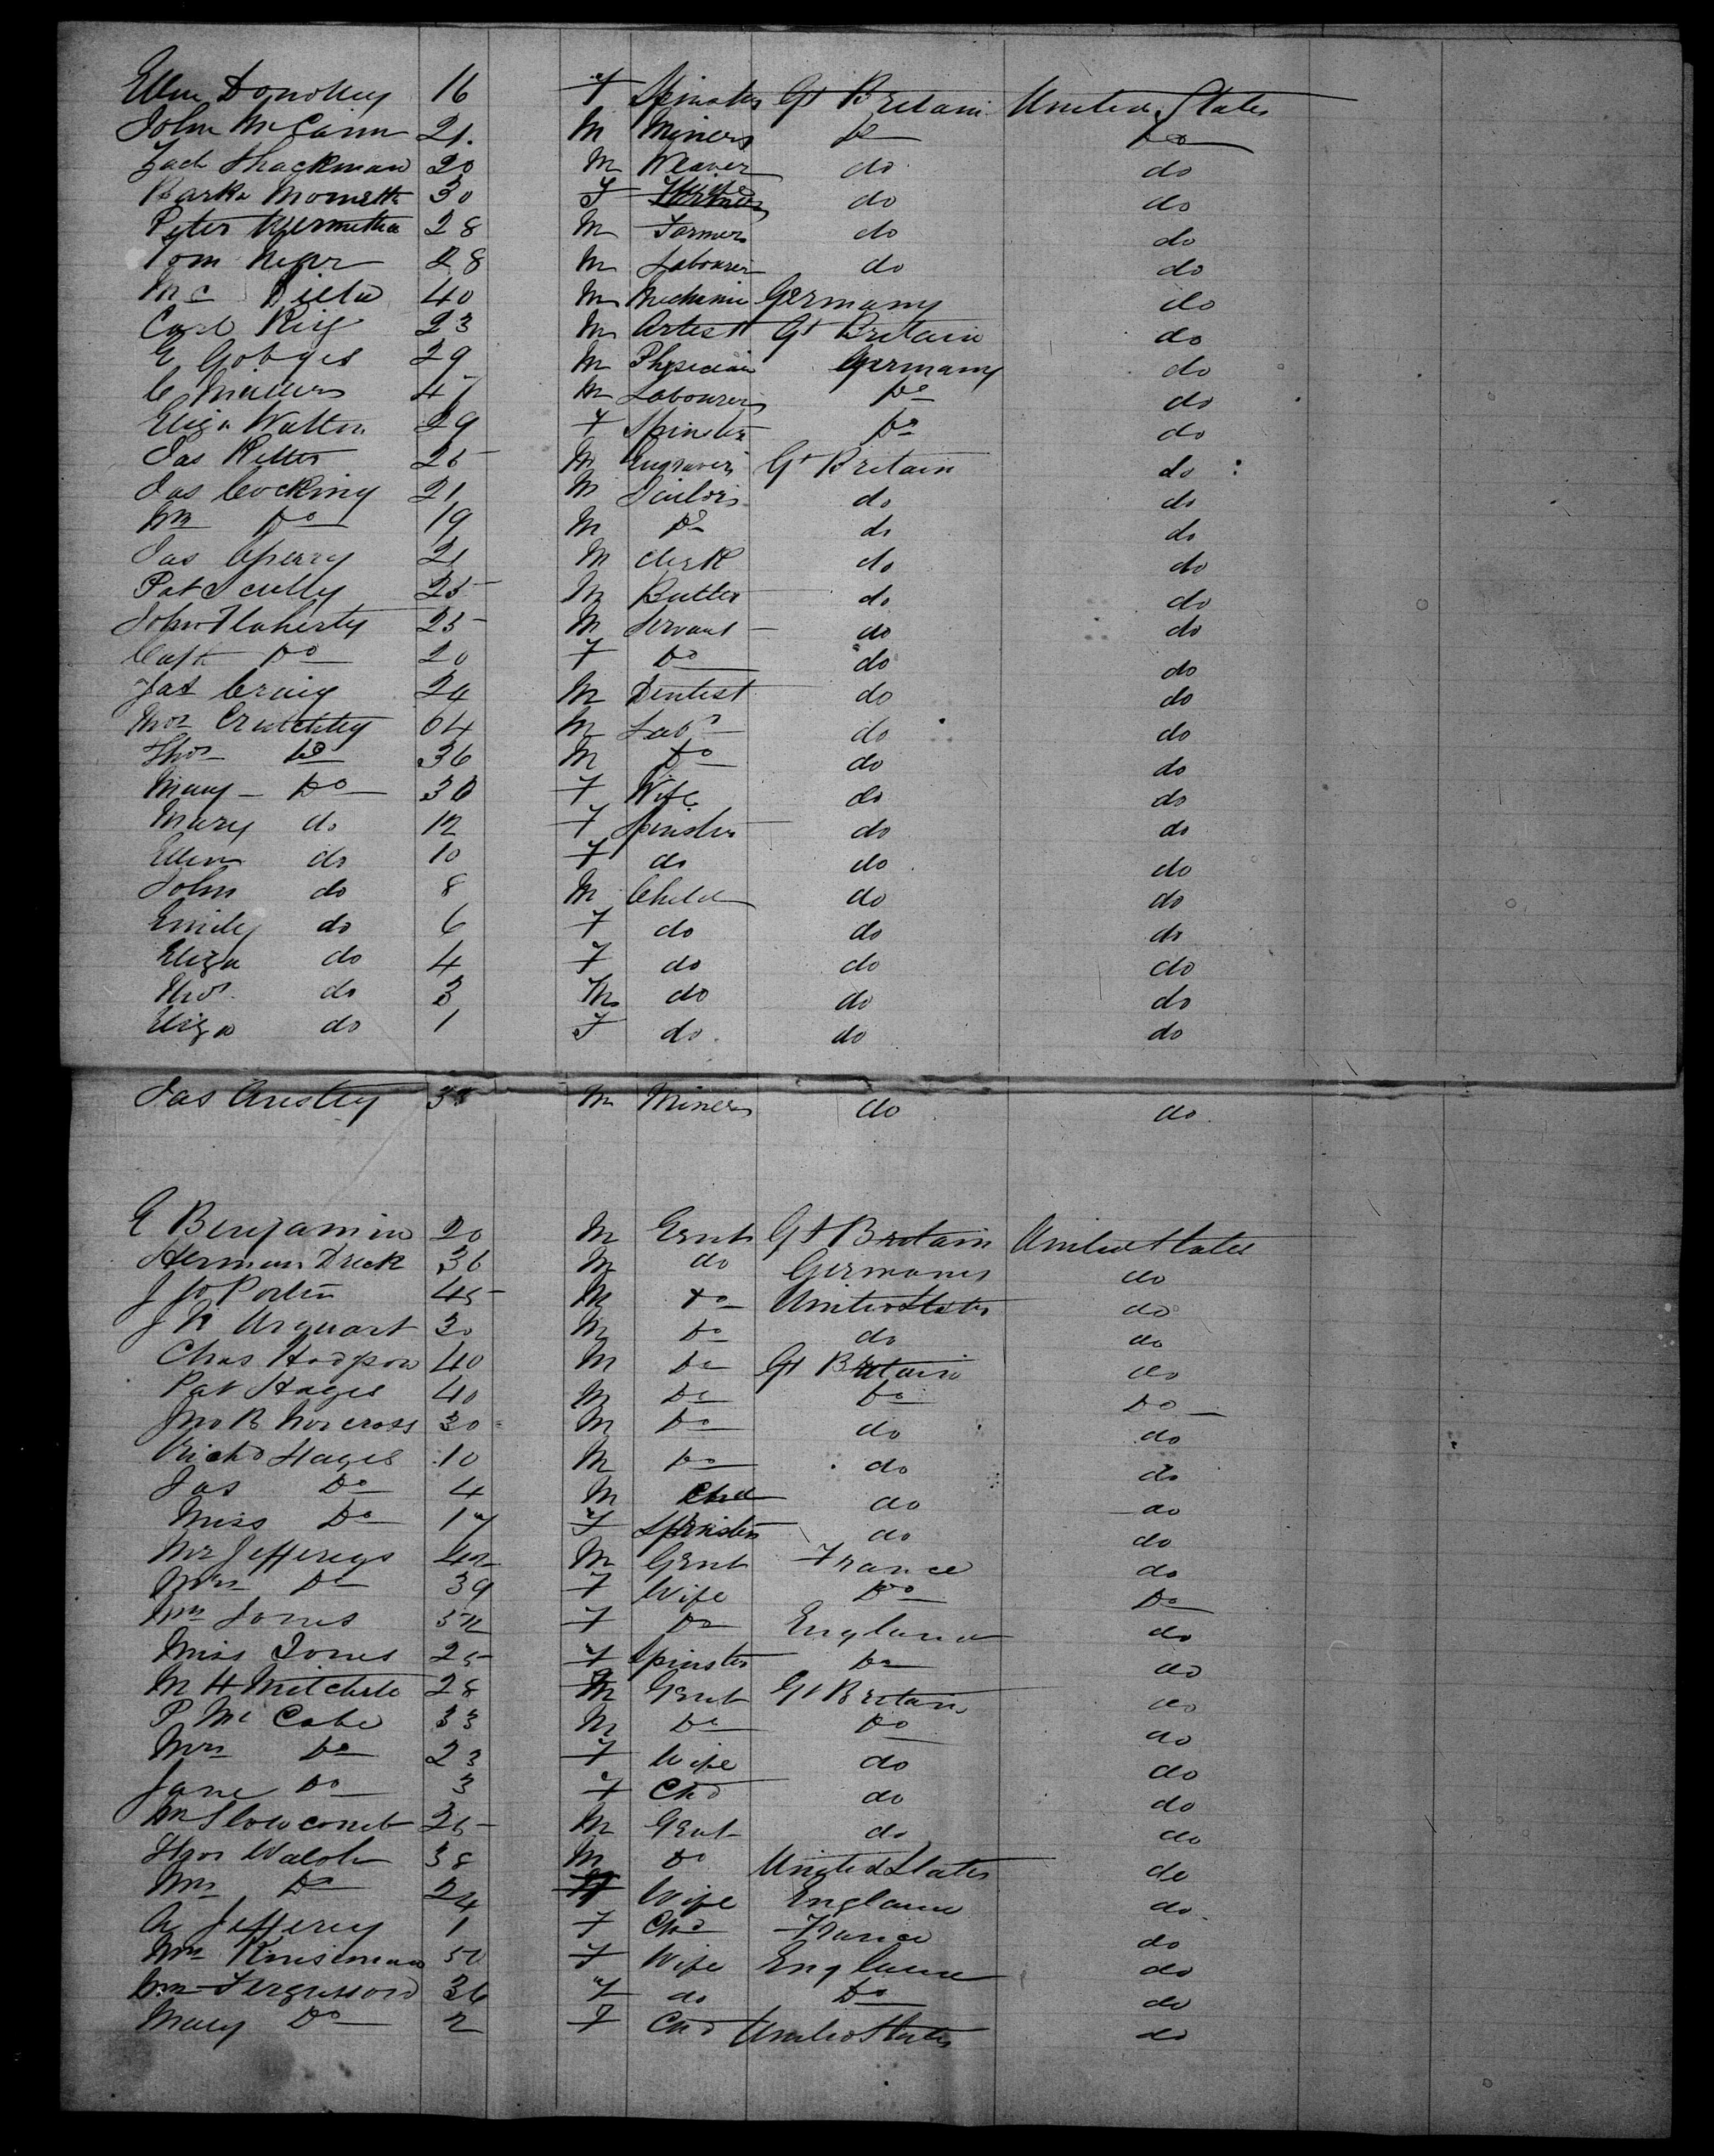 Ellen Donohey 16 F Spinster Gt Britain United States
John McCann 21. M Miner Do Do
Zach Shackman 20 M Weaver do do
30 F Wife do do
Peter 28 M Farmer do do
Tom 28 M Labourer do do
Mc 40 M Mechanic Germany do
Carl 23 M Artist Gt Britain do
E Gobges 29 M Physician Germany do
C 47 M Labourer Do do
Eliza Watton 29 F Spinster Do do
Jas Ritter 25 M Engraver Gt Britain do
Jas Cocking 21 M Sailor do do
Wm Do 19 M Do do do
Jas 21 M Clerk do do
Pat Scully 25 M Butler do do
John Flaherty 25 M Servant do do
Cath Do 20 F Do do do
Jas Craig 24 M Dentist do do
Crutchley 64 M Labr do do
Thos Do 36 M Do do do
Mary Do 36 F Wife do do
Mary do 12 F Spinster do do
Ellen do 10 F do do do
John do 8 M Child do do
Emily do 6 F do do do
Eliza do 4 F do do do
Thos. do 3 M do do do
Eliza do 1 F do do do
Jas Anstey M Miner do do
E Benjamin 20 M Gent Gt Britain United States
Herman Dreck 36 M do Germany do
J Jo Portin 45 M Do United States do
J N Urquart 30 M Do do do
Chas Hodgson 40 M Do Gt Britain do
Pat Hayes 40 M Do Do Do
Jno B Norcross 30 M Do do do
Richd Hayes 10 M Do do do
Jas Do 4 M Chd do do
Miss Do 17 F Spinster do do
Mr Jefferys 42 M Gent France do
Mrs Do 39 F Wife Do Do
Mrs Jones 52 F Do England do
Miss Jones 25 F Spinster Do do
M H Mitchele 28 M Gent Gt Britain do
P McCabe 33 M Do Do do
Mrs Do 23 F Wife do do
Jane Do 3 F Chd do do
Wm Slowcomb 25 M Gent do do
Thos Walsh 38 M Do United States do
Mrs Do 24 F Wife England do
A Jefferey 1 F Chd France do
Mrs 50 F Wife England do
Mrs Fergusson 36 F do Do do
Mary Do 2 F Chd United States do